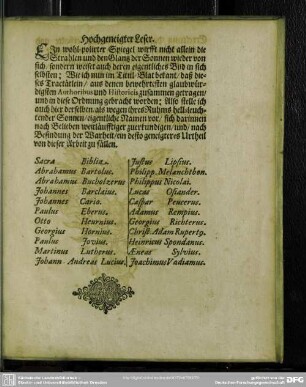 Hochgeneigter Leser.
EIn wohl-polirter Spiegel wirfft nicht allein die
Strahlen und den Glantz der Sonnen wieder von
sich, sondern weiset auch deren eigentliches Bild in sich
selbsten: Wie ich nun im Titul-Blat bekant, daß dieses
Tractätlein, aus denen bewehrtesten glaubwürdigsten
Authoribus und Historicis zusammen getragen,
und in diese Ordnung gebracht worden; Also stelle ich
auch hier derselben, als wegen ihres Ruhms hell-leuchtender
Sonnen, eigentliche Namen vor, sich darinnen
nach Belieben weitläufftiger zuerkundigen, und, nach
Befindung der Warheit, ein desto geneigteres Urtheil
von dieser Arbeit zu fällen.
Sacra Biblia.
Abrahamus Bartolus.
Abrahamus Bucholzerus
Johannes Barclaius.
Johannes Cario.
Paulus Eberus.
Otto Heurnius.
Georgius Hornius.
Paulus Jovius.
Martinus Lutherus.
Johann Andreas Lucius.
Justus Lipsius.
Philipp. Melanchthon.
Philippus Nicolai.
Lucas Osiander.
Caspar Peucerus.
Adamus Rempius.
Georgius Richterus.
Christ. Adam Ruperty.
Heinricus Spondanus.
Æneas Sylvius.
Joachimus Vadianus.